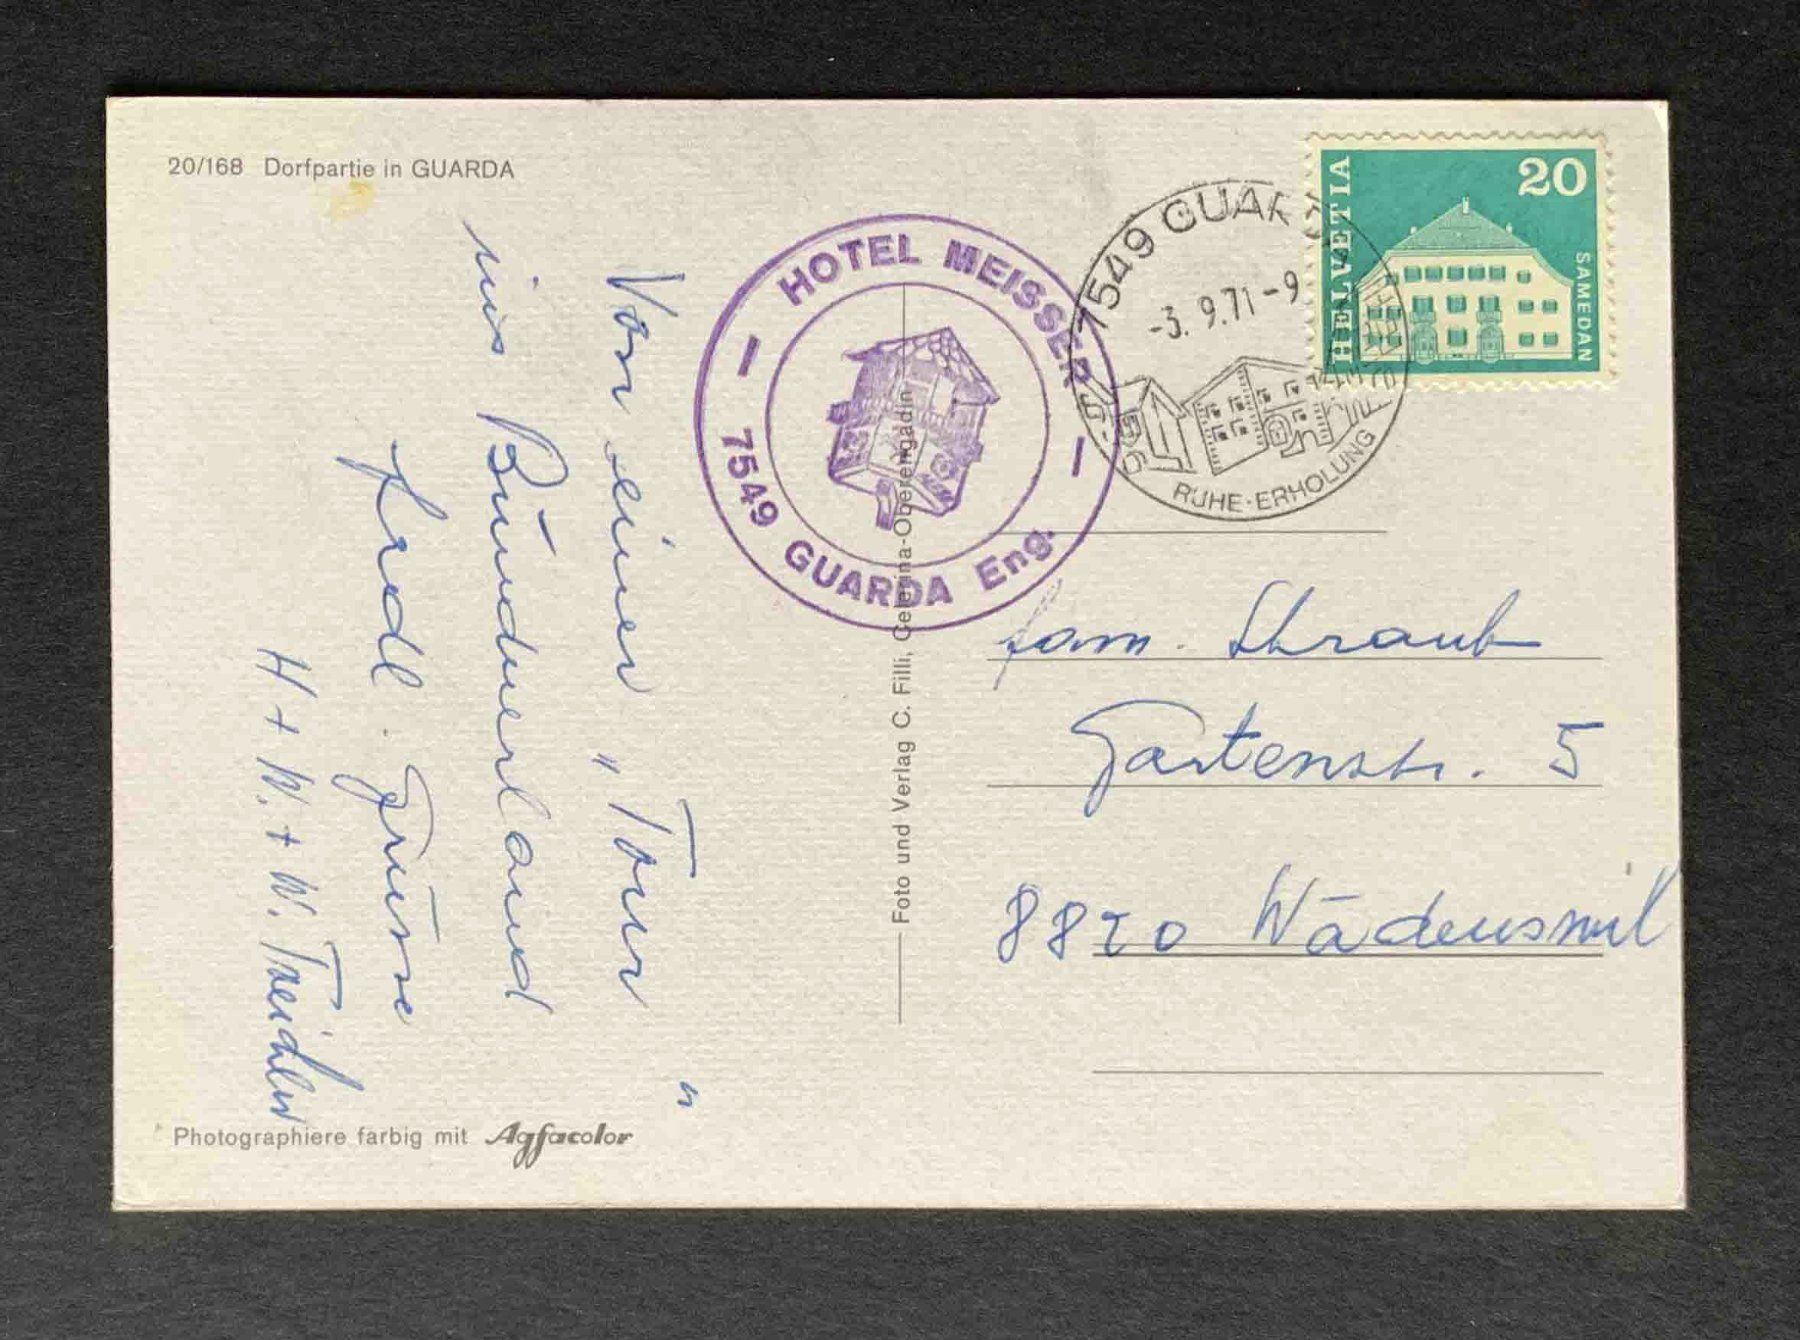 20/168 Dorfpartie in GUARDA
Von einer „Tour"
ins Bündnerland
frdl. Grüsse
H + W. + W.
Photographiere farbig mit Agfacolor
Foto und Verlag C. Filli, Celerina-Oberengadin
HOTEL MEISSER
7549 GUARDA Eng.
7549 GUAR
-3. 9.71-9
RUHE·ERHOLUNG
HELVETIA
20
SAMEDAN
Fam. Straub
Gartenstr. 5
8820 Wädenswil